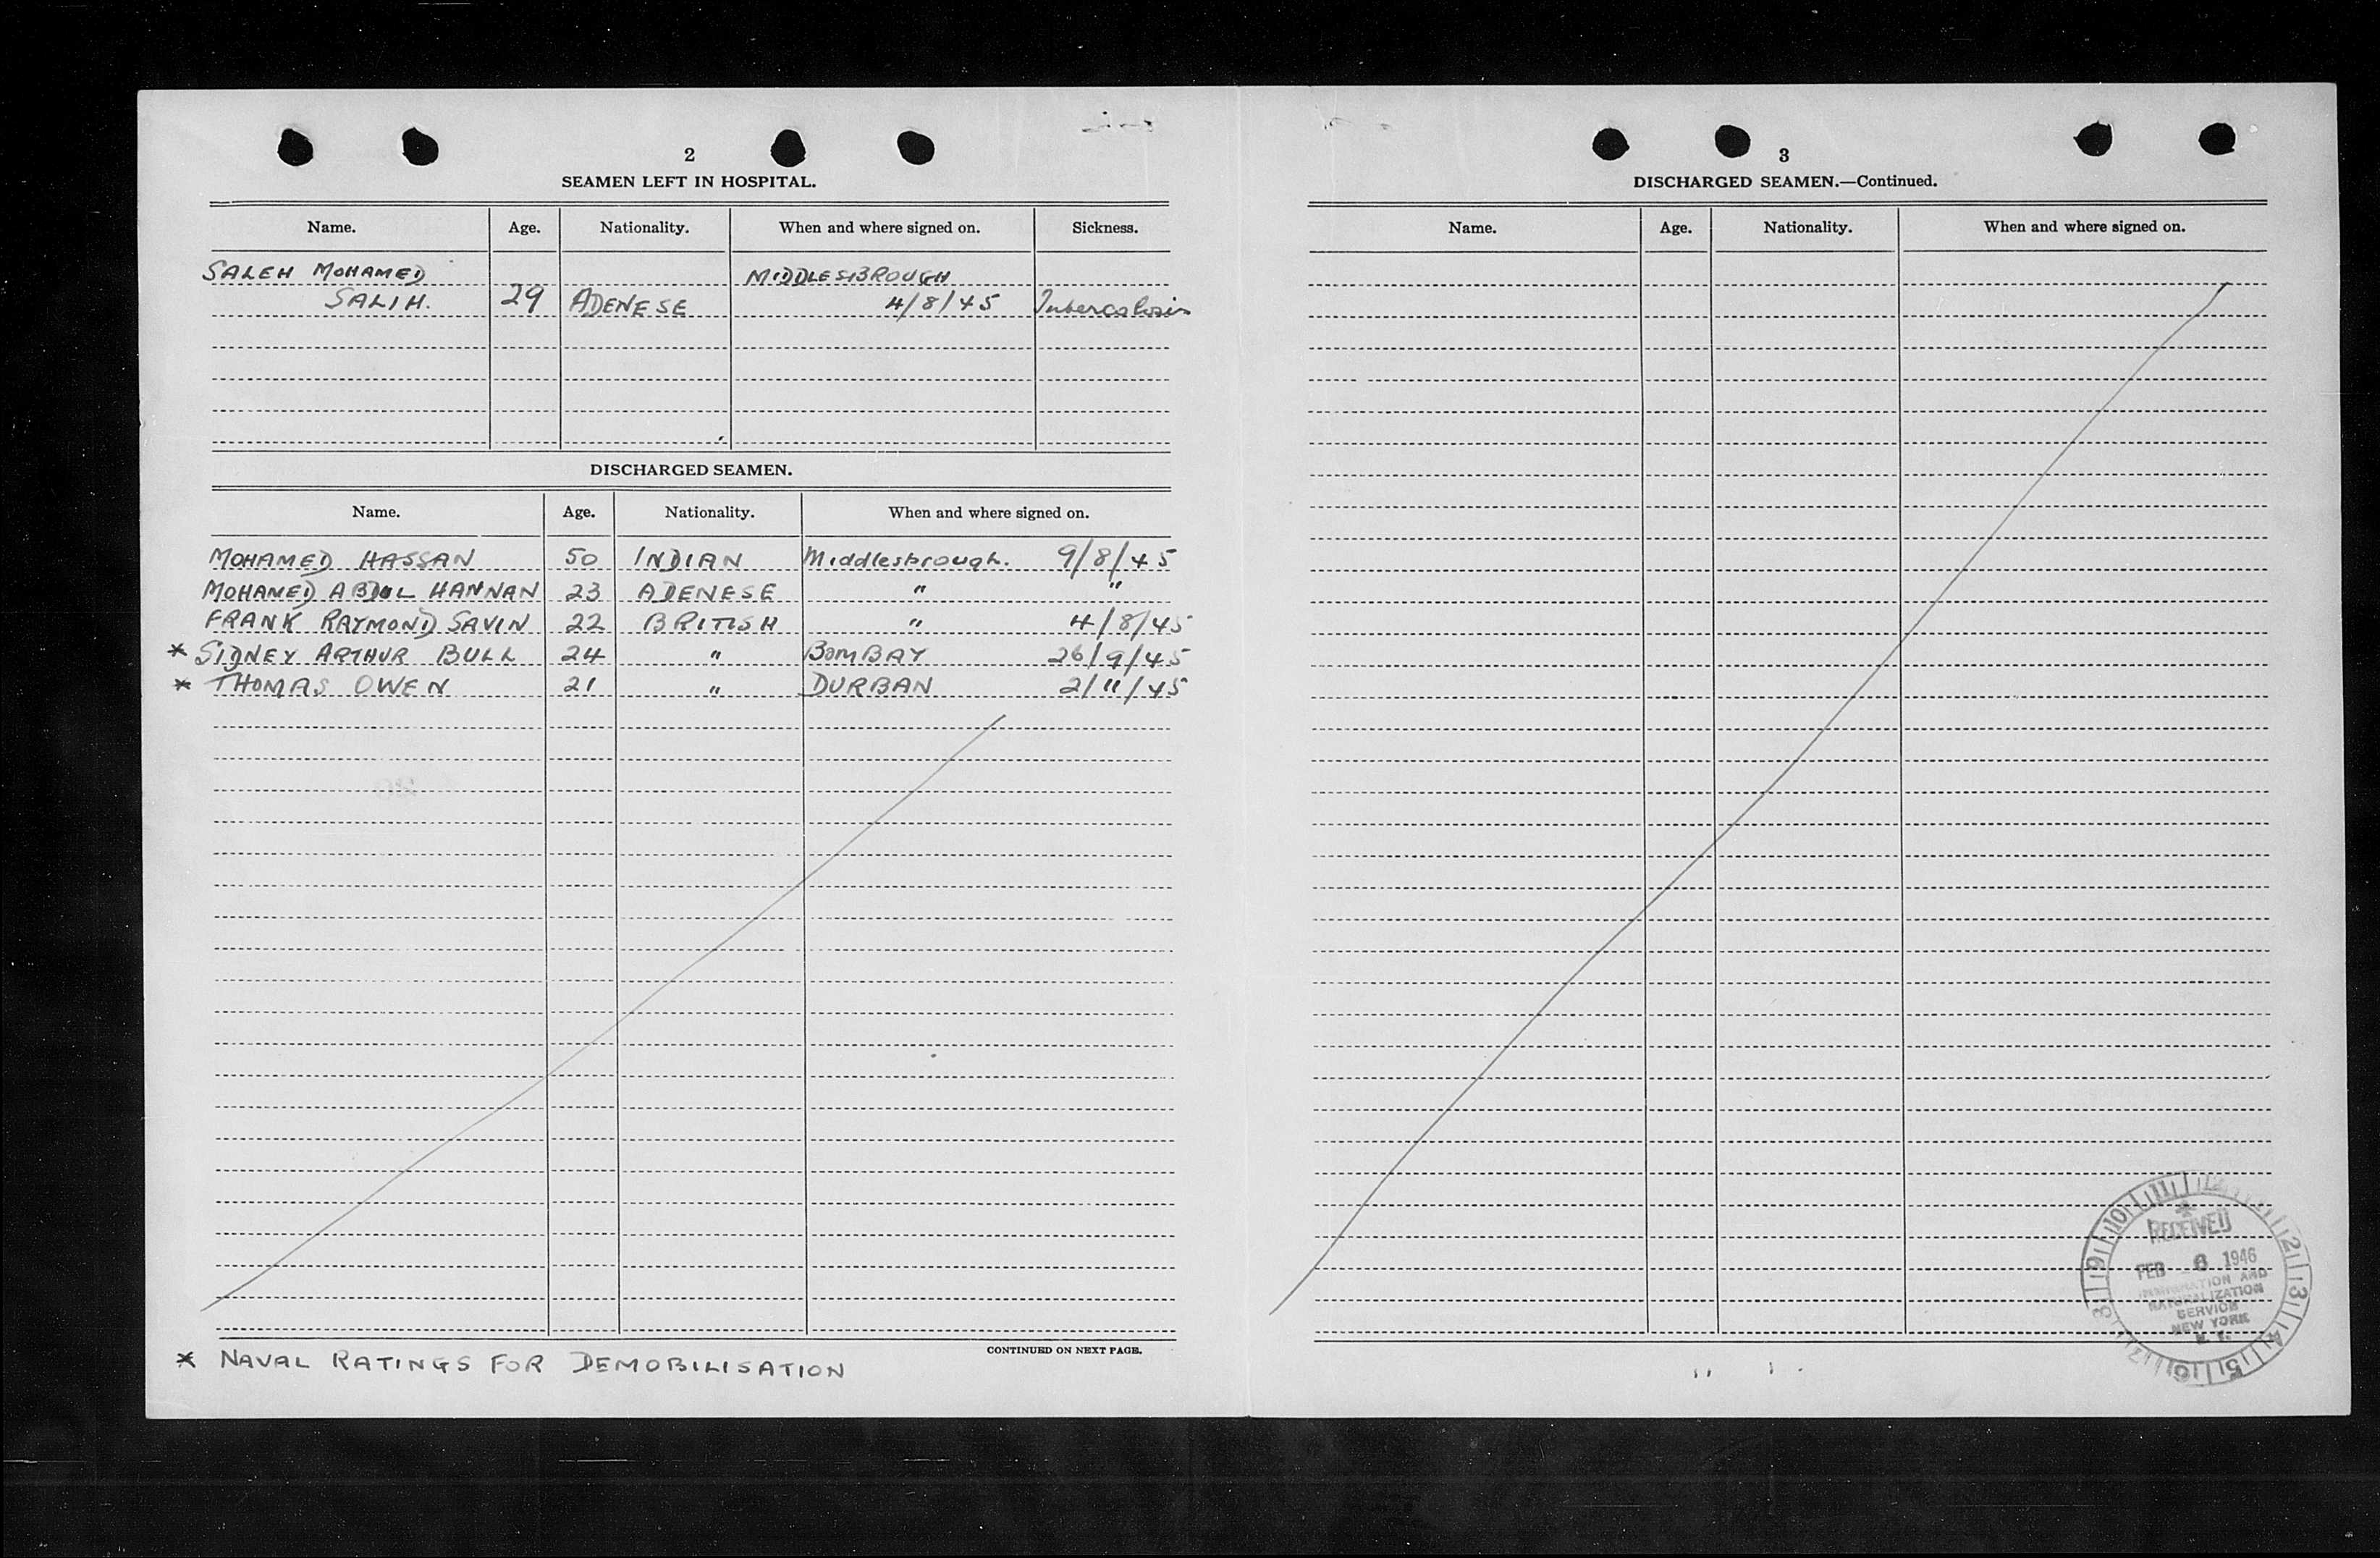 2
SEAMEN LEFT IN HOSPITAL.
Name. Age. Nationality. When and where signed on. Sickness.
SALEH MOHAMED MIDDLESBROUGH
SALIH. 29 ADENESE 4/8/45 Tuberculosis
DISCHARGED SEAMEN.
Name. Age. Nationality. When and where signed on.
MOHAMED HASSAN 50 INDIAN Middlesbrough. 9/8/45
MOHAMED ABDUL HANNAN 23 ADENESE " "
FRANK RAYMOND SAVIN 22 BRITISH " 4/8/45
* SIDNEY ARTHUR BULL 24 " BOMBAY 26/9/45
* THOMAS OWEN 21 " DURBAN 2/11/45
CONTINUED ON NEXT PAGE.
* NAVAL RATINGS FOR DEMOBILISATION
3
DISCHARGED SEAMEN.—Continued.
Name. Age. Nationality. When and where signed on.
RECEIVED
FEB 6 1946
IMMIGRATION AND
NATURALIZATION
SERVICE
NEW YORK
N. Y.